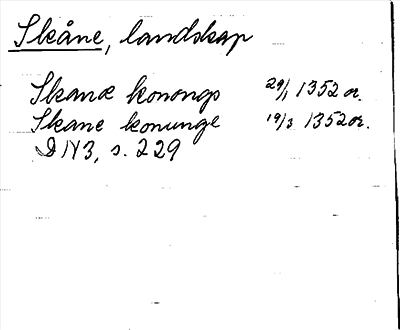 Skåne, landskap
Skanæ konongs 29/1 1352 or.
Skane konunge 19/3 1352 or.
DN3, s. 229